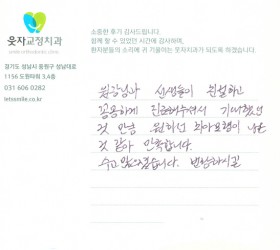 웃자교정치과
www.uttzasmile.com
경기도 성남시 중원구 성남대로
1156 도원타워 3,6층
031 606 0282
letssmile.co.kr
소중한 후기 감사드립니다.
함께 할 수 있었던 시간에 감사하며,
환자분들의 소리에 귀 기울이는 웃자치과가 되도록 하겠습니다.
원장님과 선생님들이 친절하고
꼼꼼하게 진료해주셔서 기대했던
것 만큼 원하던 치아모형이 나온
것 같아 만족합니다.
수고 많으셨습니다. 번창하시길